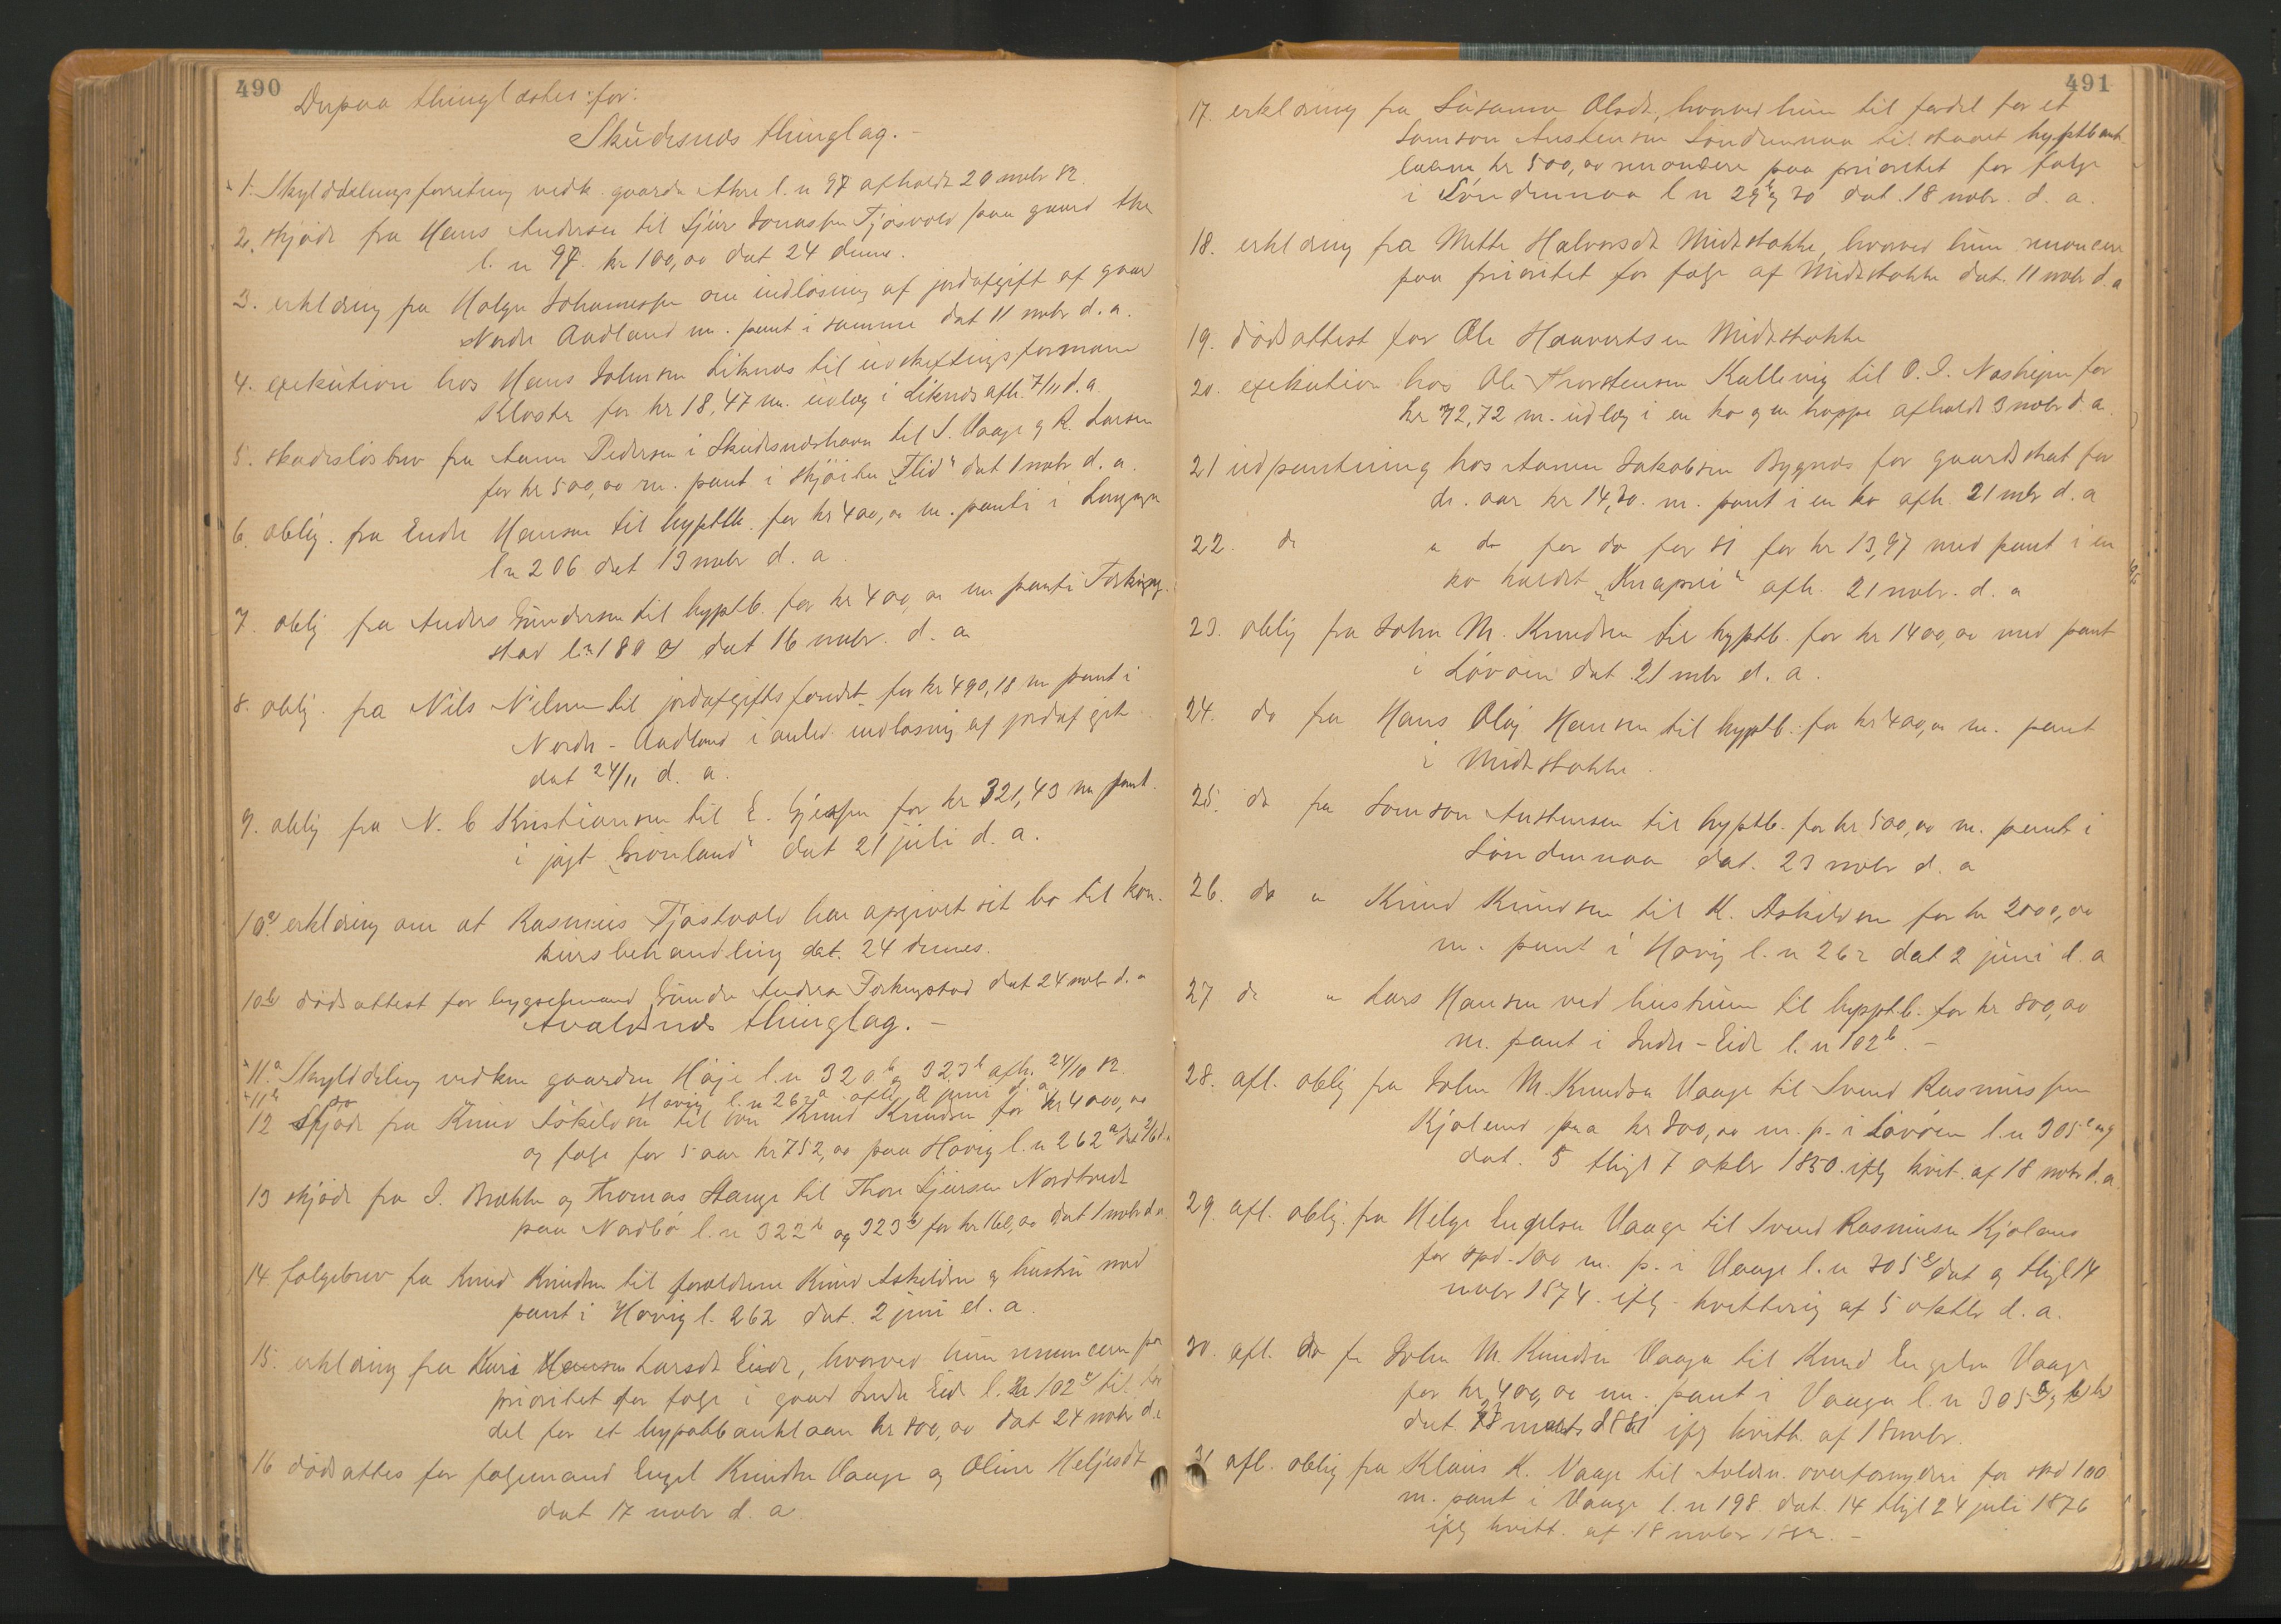 490
Derpaa thinglæstes: for:
Skudesnæs thinglag. -
1. Skylddelingsforretning vedk. gaarden Akre l. n 97 afholdt 20 novbr 82
2. skjøde fra Hans Andersen til Sjur Jonassen Tjøsvold paa gaard Akre
l. n 97. kr 100,00 dat 24 dennes.
3. erklæring fra Holger Johannessen om indløsning af jordafgift af gaar
Nordre Aadland m. pant i samme dat 11 novbr d. a.
4. exekution hos Hans Johnsen Liknæs til udskiftningsformand
Kloster for kr 18,47 m. udlæg i Liknæs afh. 7/11 d. a.
5. skadesløsbrev fra Aamu Pedersen i Skudesnæshavn til S. Vaage og R. Larsen
for kr 500,00 m. pant i skjøiten "Flid" dat 1 novbr d. a.
6. oblig. fra Endre Hansen til hyptbk. for kr 400,00 m. pant i
l n 206 dat 13 novbr d. a
7. oblig fra Anders Gundersen til hyptb. for kr 400,00 m pant i Ferkings-
stad l. n 180 dat 16 novbr. d. a
8. oblig. fra Nils Nilsen til jordafgiftsfondet for kr 490,18 m pant i
Nordre - Aadland i anled. indløsning af jordafgift
dat 24/11 d. a.
9. oblig fra N. C Kristiansen til E. for kr 321,43 m pant
i jagt "Grønland" dat 21 juli d. a.
10a erklæring om at Rasmus Tjøstvold har opgivet sit bo til kon-
kursbehandling dat. 24 dennes.
10b dødsattest for bygselmand Gunder Anders Ferkingstad dat 24 novbr d. a
Avaldsnæs thinglag. -
11a Skylddeling vedkom gaarden Høje l. n 320b og 323b afh. 24/10 82
11b do Hovig l. n 262a afh. 2 juni d. a
12 Skjøde fra Knud Askildsen til søn Knud Knudsen for kr 4000,00
og folge for 5 aar kr 752,00 paa Hovig l. n 262a dat 2/6 d. a
13 skjøde fra S. Brække og Thomas Stange til Thore Sjursen Nordtveit
paa Nordbø l. n 322b og 323b for kr 160,00 dat 1 novbr d. a
14 folgebrev fra Knud Knudsen til forældrene Knud Askildsen og hustru med
pant i Hovig l. 262 dat. 2 juni d. a.
15. erklæring fra Kari Larsdt Eide, hvorved hun renuncerer paa
prioritet for folge i gaard Indre Eide l. n 102 til for
del for et hypothbanklaan kr 800,00 dat 24 novbr d. a
16 dødsattes for folgemand Engel Knudsen Vaage og Oline Heljesdt
dat 17 novbr d. a.
491
17. erklæring fra Susanna Olsdt., hvorved hun til fordel for et
Samson Austensen Søndenaa tilstaaet hyptbank
laan kr 500,00 renoncere paa prioritet for folge
i Søndenaa l n 29b og 30 dat. 18 novbr. d. a.
18. erklæring fra Mette Halvorsdt Midtstokke, hvorved hun renoncere
paa prioritet for folge af Midtstokke dat. 11 novbr d. a
19. dødsattest for Ole Haavortsen Midtstokke
20. exekution hos Ole Thorstensen Kallevig til O. J. for
kr 72,72 m. udlæg i en ko og en hoppe afholdt 3 novbr d. a.
21 udpantning hos Aamu Jakobsen Bygnæs for gaardskat for
d. aar kr 14,20. m. pant i en ko afh. 21 novbr d. a
22. do " do for do for 81 for kr 13,97 med pant i en
ko kaldet "Knaprei" afh. 21 novbr. d. a
23. oblig fra John M. Knudsen til hyptb. for kr 1400,00 med pant
i Løvøen dat 21 novbr d. a.
24. do fra Hans Olaj Hansen til hyptb. for kr 400,00 m. pant
i Midtstokke.
25. do fra Samson Austensen til hyptb. for kr 500,00 m. pant i
Søndenaa dat. 23 novbr d. a
26. do " Knud Knudsen til K. Askildsen for kr 2000,00
m. pant i Hovig l. n 262 dat 2 juni d. a
27 do " Lars Hansen ved hustrum til hypptb. for kr 800,00
m. pant i Indre - Eide l. n 102b. -
28. afl. oblig fra John M. Knudsen Vaage til Svend Rasmussen
Kjølund paa kr 800,00 m. p. i Løvøen l. n 305
dat. 5 thgl 7 oktbr 1850. iflg kvit. af 18 novbr d. a.
29. afl. oblig. fra Helge Engelsen Vaage til Svend Rasmusen Kjolans
for spd. 100 m. p. i Vaage l. n 305 dat og thgl 14
novbr 1874. iflg. kvittering af 5 oktbr d. a.
30. afl. do fr John M. Knudsen Vaage til Knud Engelsen Vaage
for kr 400,00 m. pant i Vaage l. n 305
dat marts 1881 iflg kvitt. af 18 novbr.
31 afl. oblig fra Klaus K. Vaage til Avaldsn. overformyderi for spd 100
m. pant i Vaage l. n 198. dat. 14 thgl 24 juli 1876
iflg kvitt. af 18 novbr 1882. -